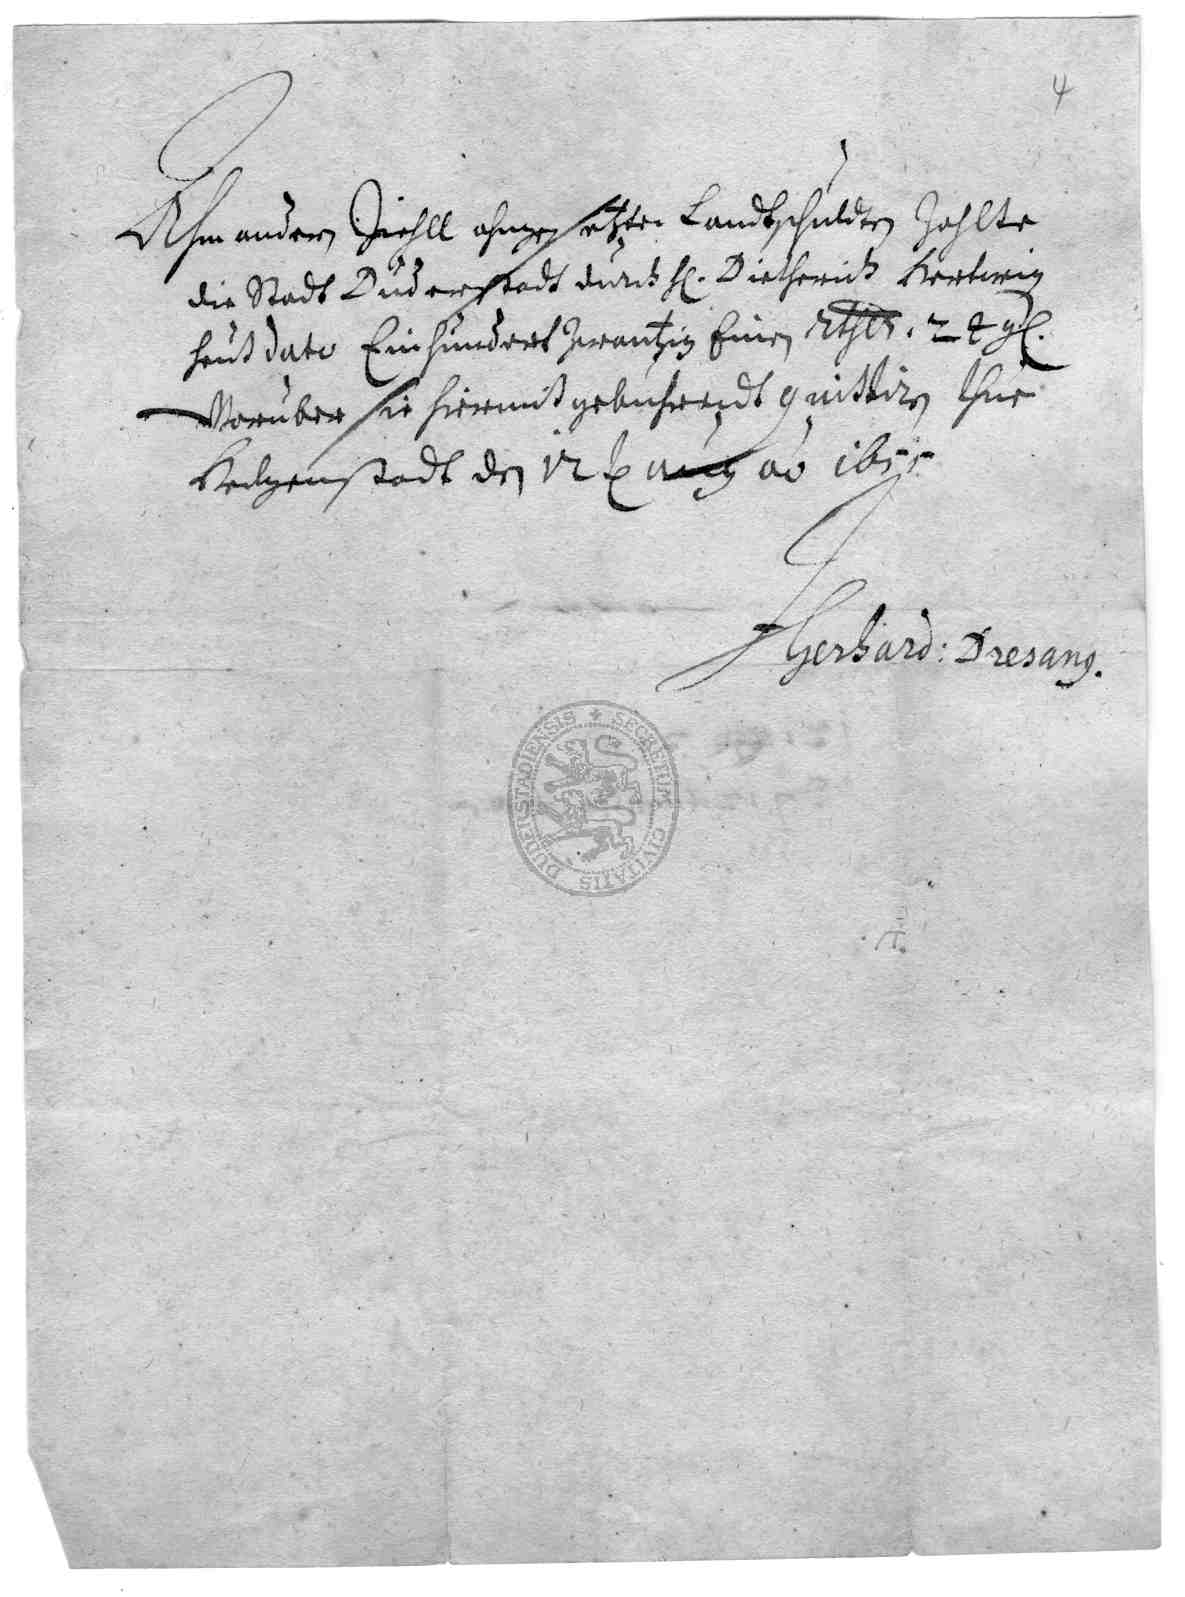 4
Ahm andern Ziehll ahngesetzter Landtschulden zahlte
die Stadt Duderstadt durch H. Dietherich Hertwig
heut dato Einhundert zwantzig Einen Rthlr. 24 gl.
Worüber sie hiermit gebührendt quittire thue
Heiligenstadt den 12 aug ao 1655
Gerhard: Dresang.
SECRETUM CIVITATIS DUDERSTADIENSIS